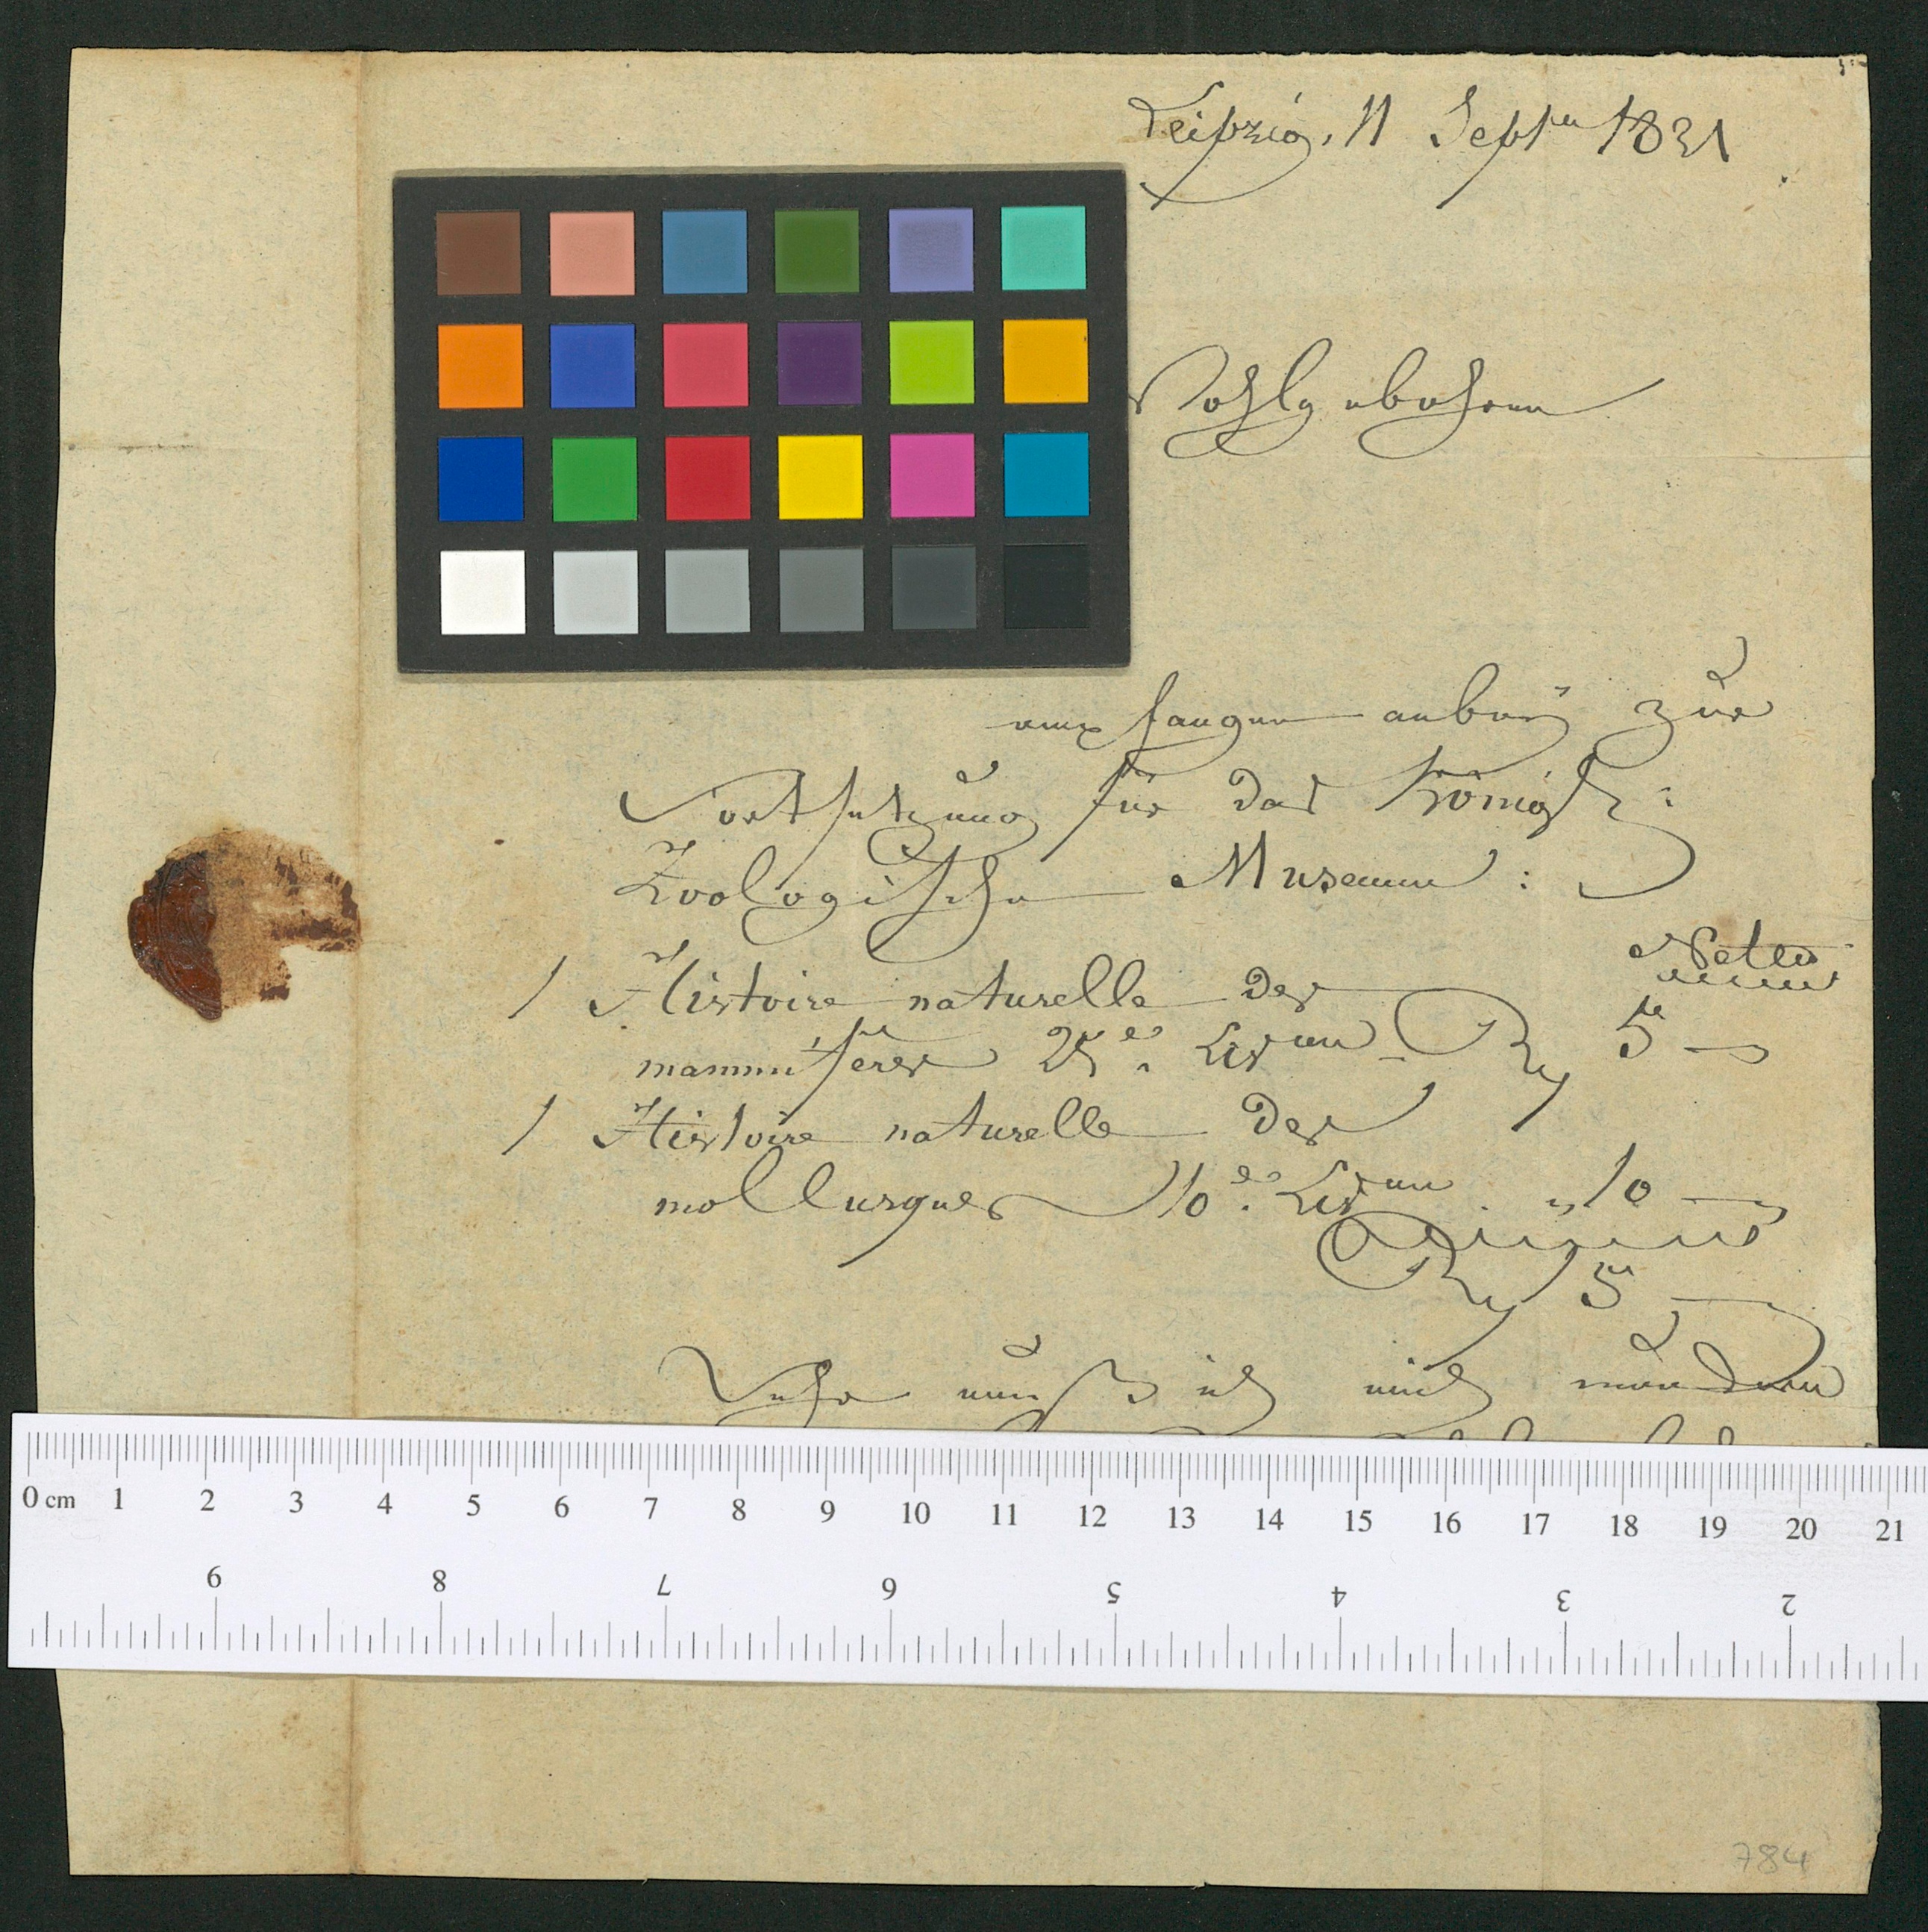 Leipzig, 11 Septr 1831
Wohlgebohren
empfangen anbey zur
Fortsetzung für das Königl:
Zoologische Museum:
Netto
1 Histoire naturelle des
mammifères 25e. Livraison Rg 5 —
1 Histoire naturelle des
mollusques 10e. Livraison „ 10 —
Rg 5 —
Sehr muß ich mich wundern
0 cm 1 2 3 4 5 6 7 8 9 10 11 12 13 14 15 16 17 18 19 20 21
9 8 7 6 5 4 3 2
784